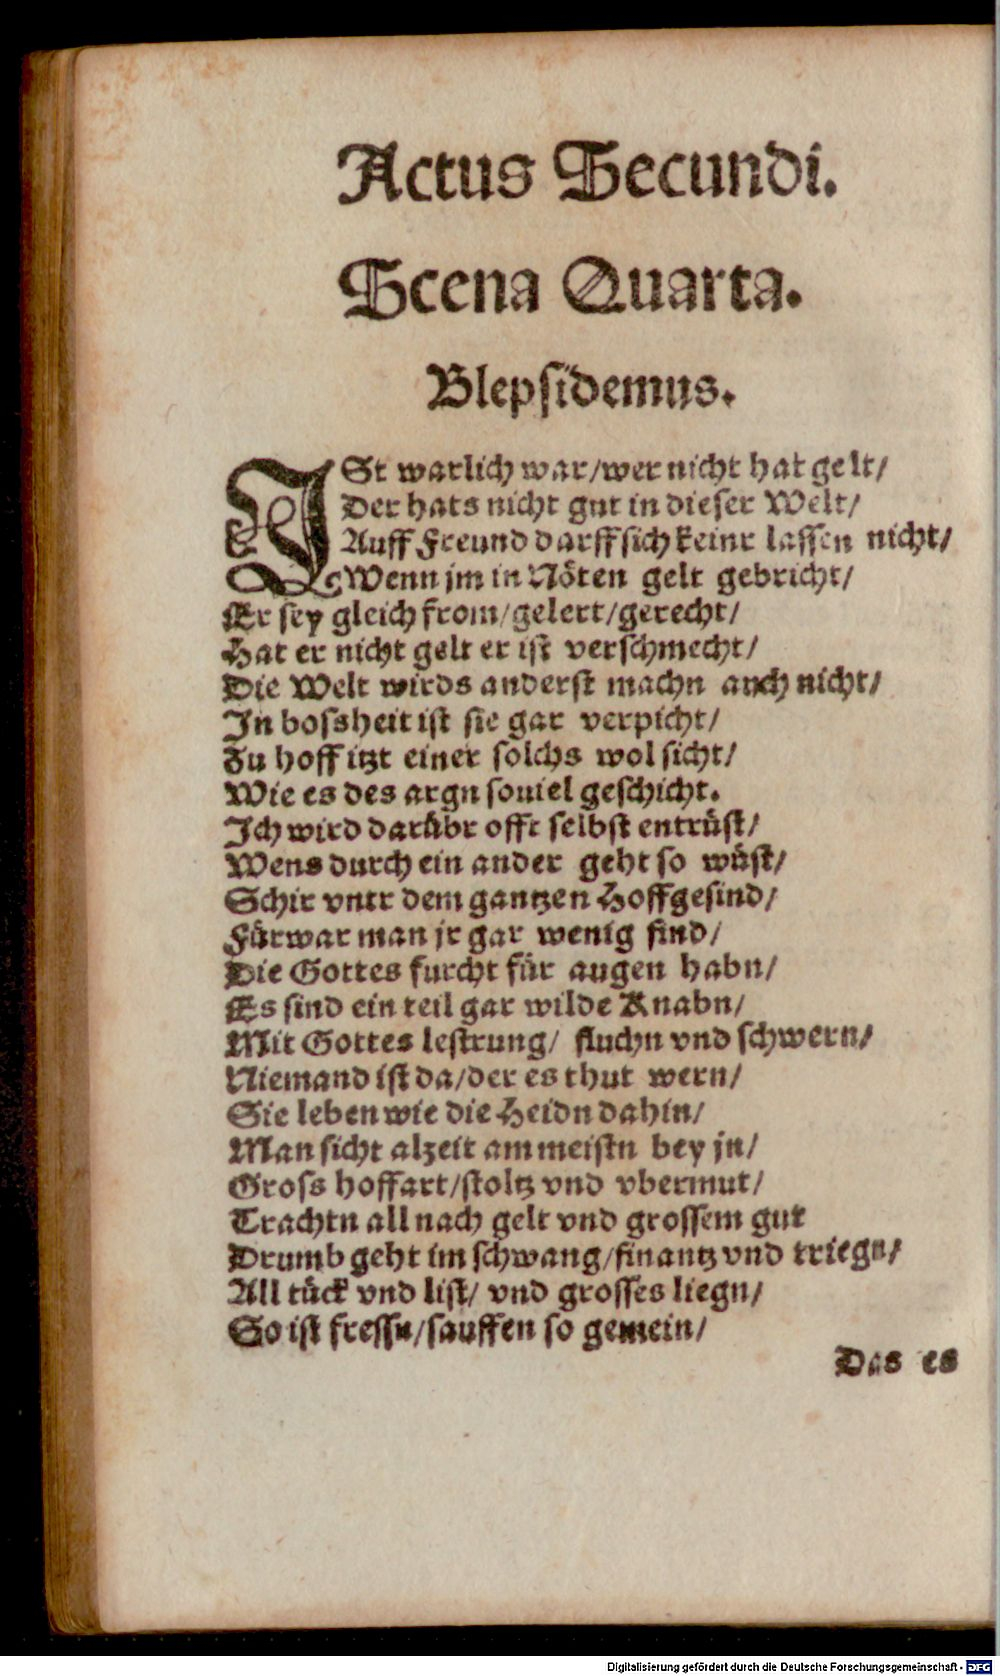 Actus Secundi.
Scena Quarta.
Blepsidemus.
ISt warlich war/wer nicht hat gelt/
Der hats nicht gut in dieser Welt/
Auff Freund darff sich keinr lassen nicht/
Wenn jm in Nöten gelt gebricht/
Er sey gleich from/gelert/gerecht/
Hat er nicht gelt er ist verschmecht/
Die Welt wirds anderst machn auch nicht/
In bossheit ist sie gar verpicht/
Zu hoff itzt einer solchs wol sicht/
Wie es des argn souiel geschicht.
Ich wird darübr offt selbst entrüst/
Wens durch ein ander geht so wüst/
Schir vntr dem gantzen Hoffgesind/
Fürwar man jr gar wenig find/
Die Gottes furcht für augen habn/
Es sind ein teil gar wilde Knabn/
Mit Gottes lestrung/ fluchn vnd schwern/
Niemand ist da/der es thut wern/
Sie leben wie die Heidn dahin/
Man sicht alzeit am meistn bey jn/
Gross hoffart/stoltz vnd vbermut/
Trachtn all nach gelt vnd grossem gut
Drumb geht im schwang/finantz vnd triegn/
All tück vnd list/ vnd grosses liegn/
So ist fressn/sauffen so gemein/
Das es
Digitalisierung gefördert durch die Deutsche Forschungsgemeinschaft - DFG